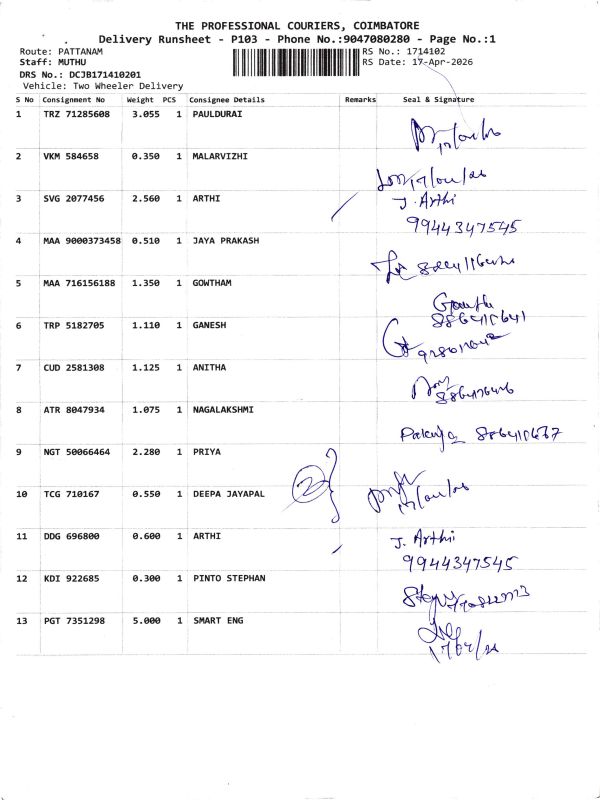 THE PROFESSIONAL COURIERS, COIMBATORE
Delivery Runsheet - P103 - Phone No.:9047080280 - Page No.:1
Route: PATTANAM RS No.: 1714102
Staff: MUTHU RS Date: 17-Apr-2026
DRS No.: DCJB171410201
Vehicle: Two Wheeler Delivery
S No Consignment No Weight PCS Consignee Details Remarks Seal & Signature
1 TRZ 71285608 3.055 1 PAULDURAI
2 VKM 584658 0.350 1 MALARVIZHI
3 SVG 2077456 2.560 1 ARTHI J. Arthi
9944347545
4 MAA 9000373458 0.510 1 JAYA PRAKASH
5 MAA 716156188 1.350 1 GOWTHAM
6 TRP 5182705 1.110 1 GANESH
7 CUD 2581308 1.125 1 ANITHA
8 ATR 8047934 1.075 1 NAGALAKSHMI
9 NGT 50066464 2.280 1 PRIYA
10 TCG 710167 0.550 1 DEEPA JAYAPAL 2
11 DDG 696800 0.600 1 ARTHI J. Arthi
9944347545
12 KDI 922685 0.300 1 PINTO STEPHAN
13 PGT 7351298 5.000 1 SMART ENG